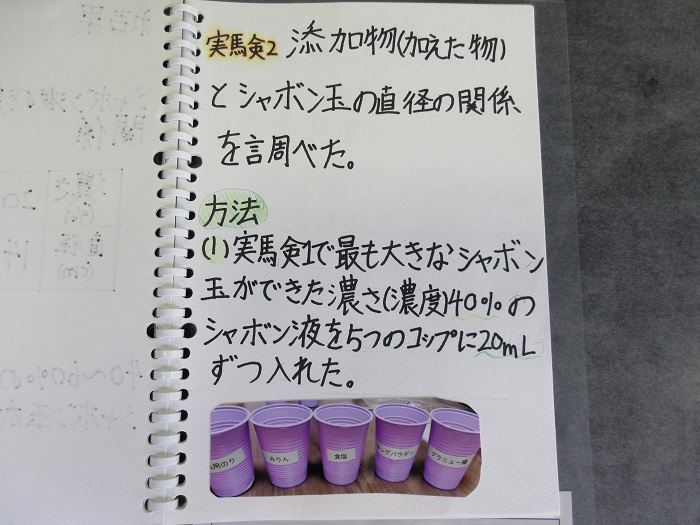 実験2 添加物(加えた物)
とシャボン玉の直径の関係
を調べた。
方法
(1)実験1で最も大きなシャボン
玉ができた濃さ(濃度)40%の
シャボン液を5つのコップに20mL
ずつ入れた。
みりん
食塩
グラニュー糖